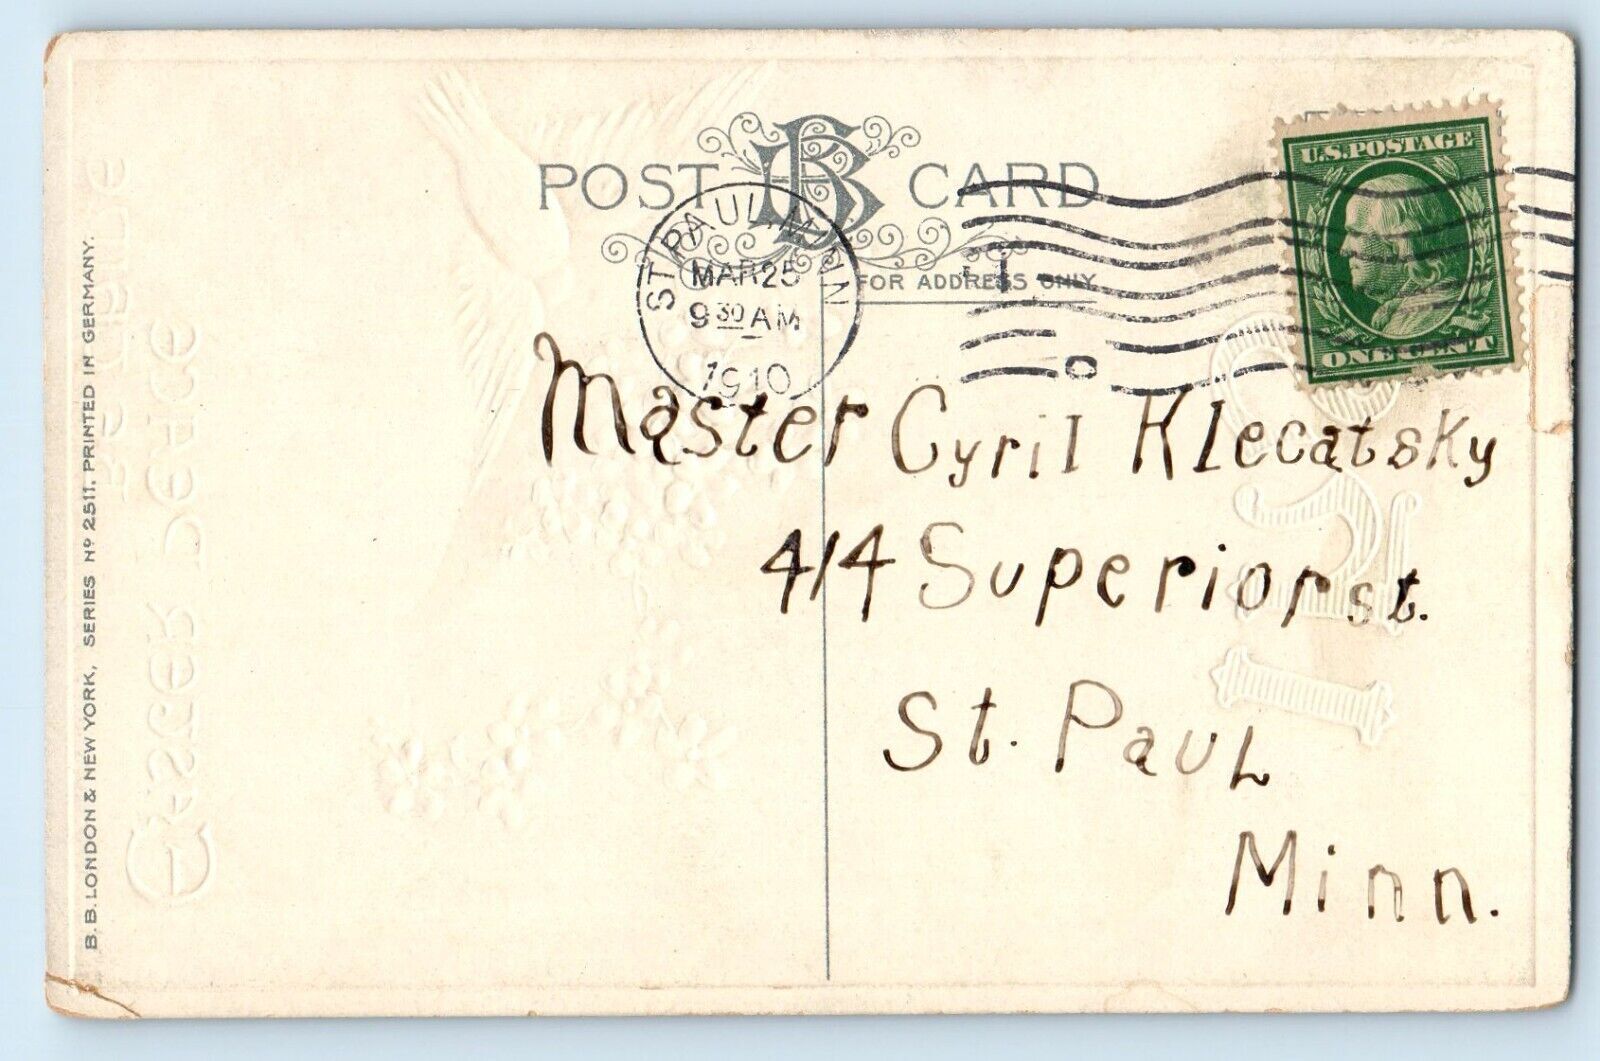 POST BB CARD
FOR ADDRESS ONLY
U.S. POSTAGE
ONE CENT
ST PAUL, MINN
MAR 25
9 30 AM
1910
Master Cyril Klecatsky
414 Superior st.
St. Paul
Minn.
B. B. LONDON & NEW YORK, SERIES Nº 2511. PRINTED IN GERMANY.
Easter Peace
Be Thine